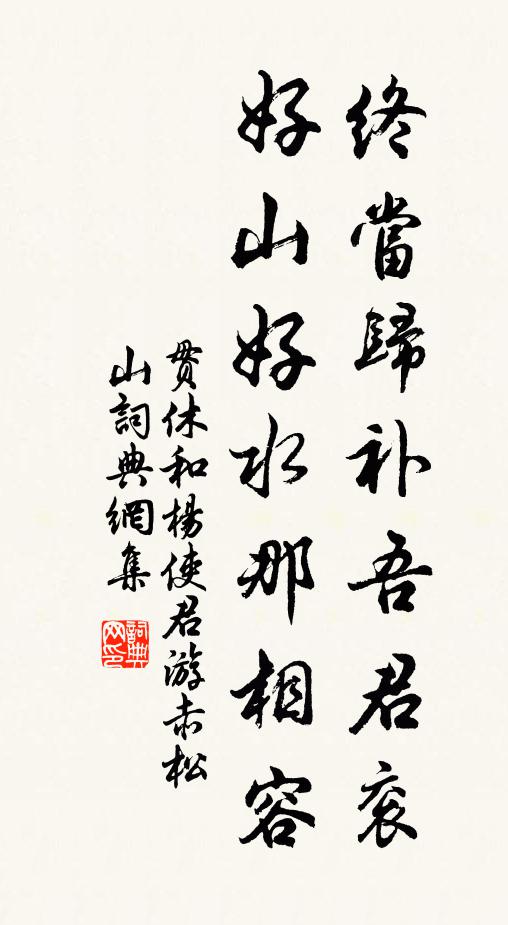 終當歸补吾君衮
好山好水那相容
貫休和楊使君游赤松
山詞典網集
詞典
网印